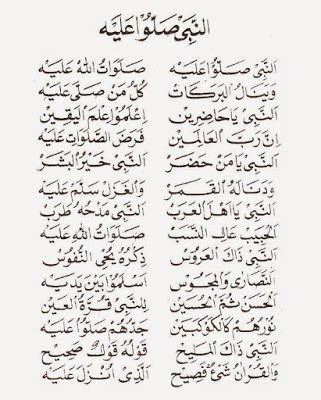 النبي صلوا عليه
النبي صلوا عليه صلوات الله عليه
وينال البركات كل من صلى عليه
النبي يا حاضرين اعلموا علم اليقين
ان رب العالمين فرض الصلوات عليه
النبي يا من حضر النبي خير البشر
ودنا له القمر والغزل سلم عليه
النبي يا اهل العرب النبي مدحه طرب
الحبيب عالي النسب صلوات الله عليه
النبي ذاك العروس ذكره يحي النفوس
النصارى والمجوس اسلموا بين يديه
الحسن ثم الحسين للنبي قرة العين
نورهم كالكوكبين جدهم صلوا عليه
النبي ذاك المليح قوله قول صحيح
والقران شئ فصيح الذي انزل عليه